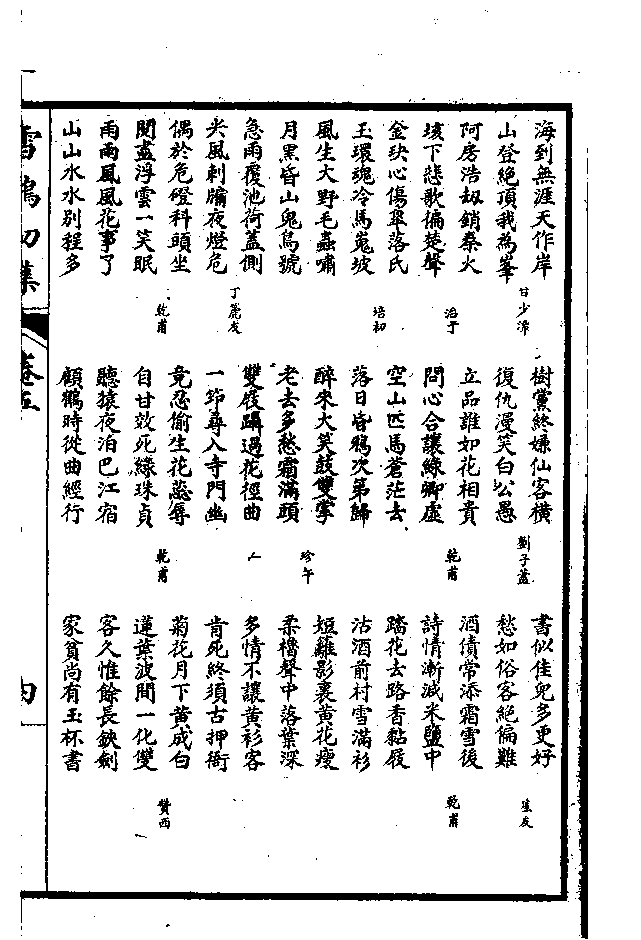 海到無涯天作岸
山登絕頂我為峯
甘少潭
阿房浩刼銷秦火
垓下悲歌偏楚聲
治于
金玦心傷皋落氏
玉環魂冷馬嵬坡
培初
風生大野毛蟲嘯
月黑昏山鬼鳥號
急雨覆池荷蓋側
尖風刺牖夜燈危
丁麓友
偶於危磴科頭坐
閱盡浮雲一笑眠
乾甫
雨雨風風花事了
山山水水別程多
樹黨終嫌仙客橫
復仇漫笑白公愚
劉子蓋
立品誰如花相貴
問心合讓綠卿虛
乾甫
空山匹馬蒼茫去
落日昏鴉次第歸
醉來大笑鼓雙掌
老去多愁霜滿頭
珍午
雙屐躡過花徑曲
一笻尋入寺門幽
竟忍偷生花蕊辱
自甘效死綠珠貞
乾甫
聽猿夜泊巴江宿
顧鶴時從曲經行
書似佳兒多更好
愁如俗客絕偏難
笙友
酒債常添霜雪後
詩情漸減米鹽中
乾甫
踏花去路香黏屐
沽酒前村雪滿衫
短籬影裏黃花瘦
柔櫓聲中落葉深
多情不讓黃衫客
肯死終須古押衙
菊花月下黃成白
蓮葉波間一化雙
贊西
客久惟餘長鋏劍
家貧尚有玉杯書
雪鴻初集
卷五